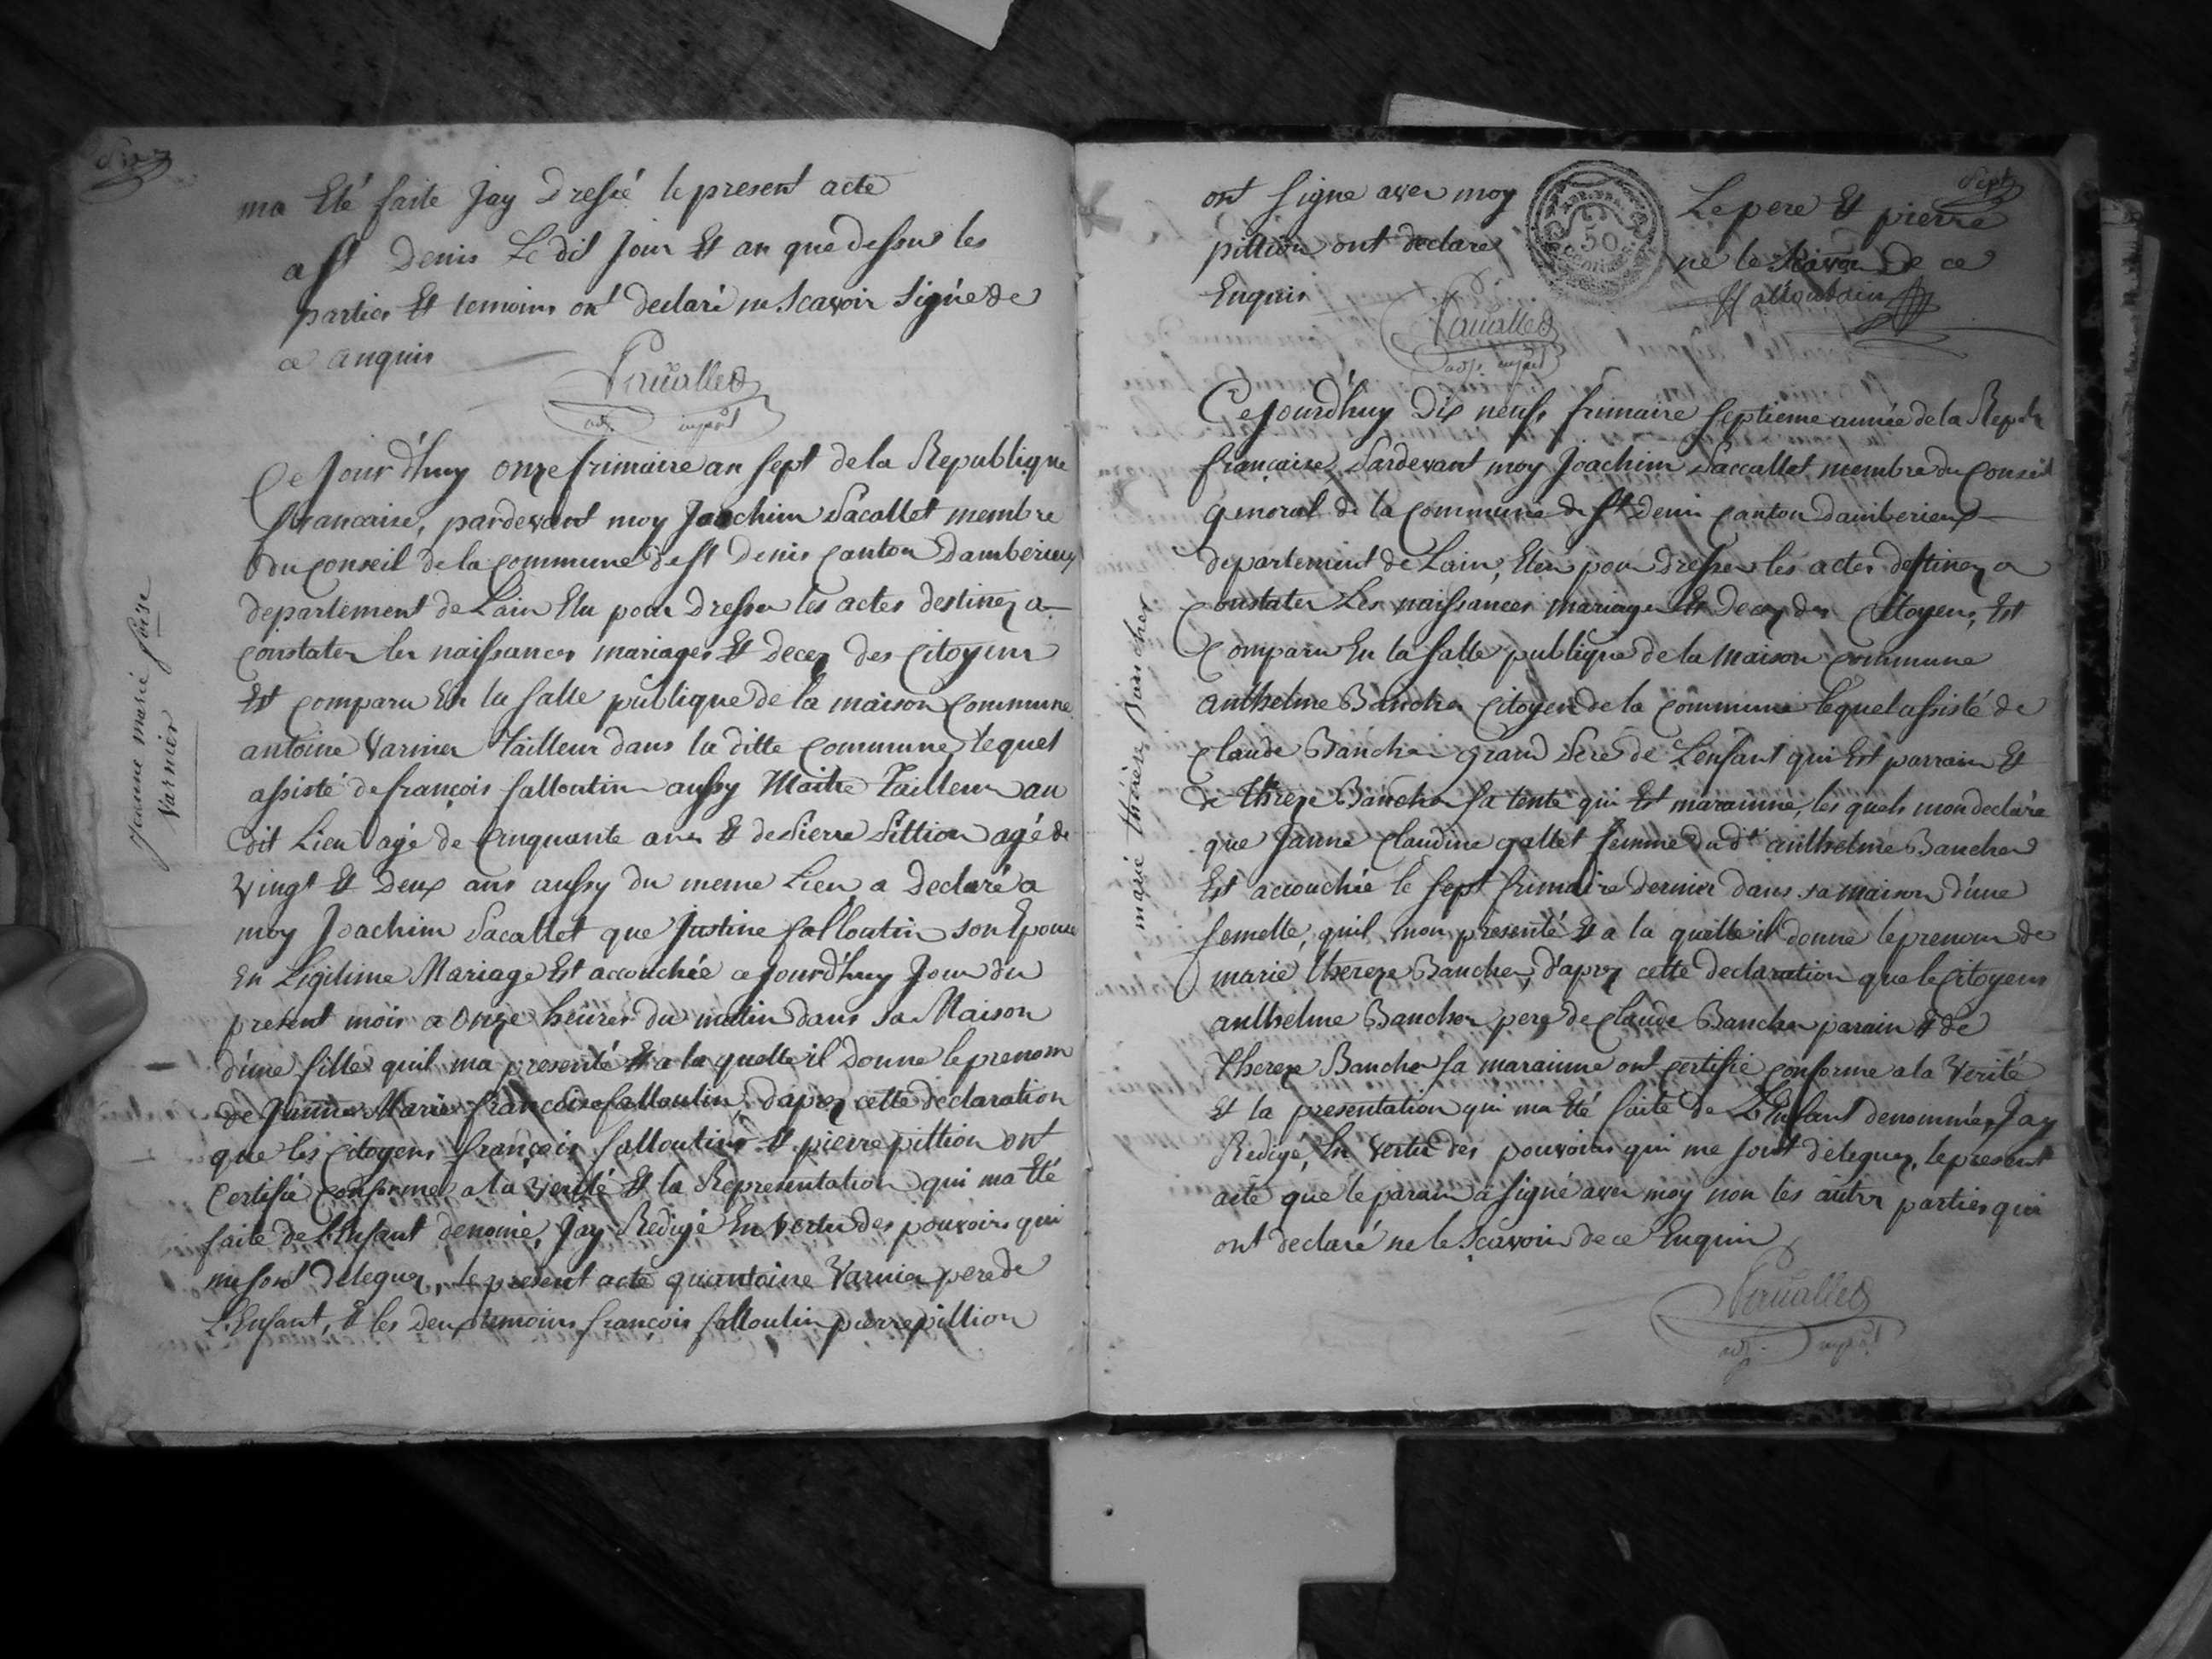 ma Eté faite Jay Dressé le present acte
a st Denis Le dit Jour Et an que dessus les
parties Et temoins ont declaré ne Scavoir Signé de
ce anquis
Jeanne marie
Varnier
Ce Jourd'huy onze frimaire an sept de la Republique
francaise, pardevant moy Joachim Pacallet membre
du conseil de la commune de st Denis canton Damberieux
departement de Lain Elu pour Dresser les actes destinez a
constater les naissances mariages Et Decez des Citoyens
Est comparu En la salle publique de la maison commune
antoine Varnier Tailleur dans la ditte commune, lequel
assisté de françois falloutin aussy Maitre Tailleur au
dit Lieu agé de Cinquante ans Et de Pierre Pittion agé de
Vingt Et Deux ans aussy du meme Lieu a Declaré a
moy Joachim Pacallet que Justine falloutin son Epouse
En Legitime Mariage Est accouchée ce jourd'huy Jour du
present mois a Onze heures du matin dans sa Maison
d'une fille quil ma presenté Et a la quelle il Donne le prenom
de Marie francoise falloutin, dapres cette declaration
que les Citoyens françois falloutin Et pierre pittion ont
Certifié conforme a la verité Et la Representation qui ma Eté
faite de L'Enfant denomé, Jay Redigé En Vertu des pouvoirs qui
me sont deleguez, le present acte qui antoine Varnier pere de
L'Enfant, Et les deux temoins françois falloutin pierre pittion
Sept
ont signe avec moy Le pere Et pierre
pittion ont declare ne le Scavoir De ce
Enquis falloutin
50
marie thérèse Bancher
Ce Jourd'huy Dix neuf, frimaire septieme année de la Repub
francaise, Pardevant moy Joachim Paccallet membre du Conseil
general de la commune de st denis canton damberieux
departement de Lain, Elu pour Dresser les actes destinez a
Constater Les naissances mariages Et Decez des Citoyens, Est
Comparu En la salle publique de la Maison commune
anthelme Bancher Citoyen de la Commune lequel assisté de
Claude Bancher Grand Pere de L'enfant qui Est parrain Et
de thereze Bancher sa tente qui Est marainne, les quels mon declaré
que Janne Claudine gallet femme du dt anthelme Bancher
Est accouchée le sept frimaire dernier dans sa maison d'une
femelle, quil mon presenté Et a la quelle il donne le prenom de
marie thereze Bancher, d'aprez cette declaration que le Citoyens
anthelme Bancher pere de Claude Bancher parain Et de
thereze Bancher sa marainne ont certifié conforme a la Verité
Et la presentation qui ma Eté faite de L'Enfant denommée, Jay
Redigé, En Vertu des pouvoirs qui me sont deleguez, le present
acte que le parain a signé avec moy non les autres parties qui
ont declaré ne le Scavoir de ce Enquis